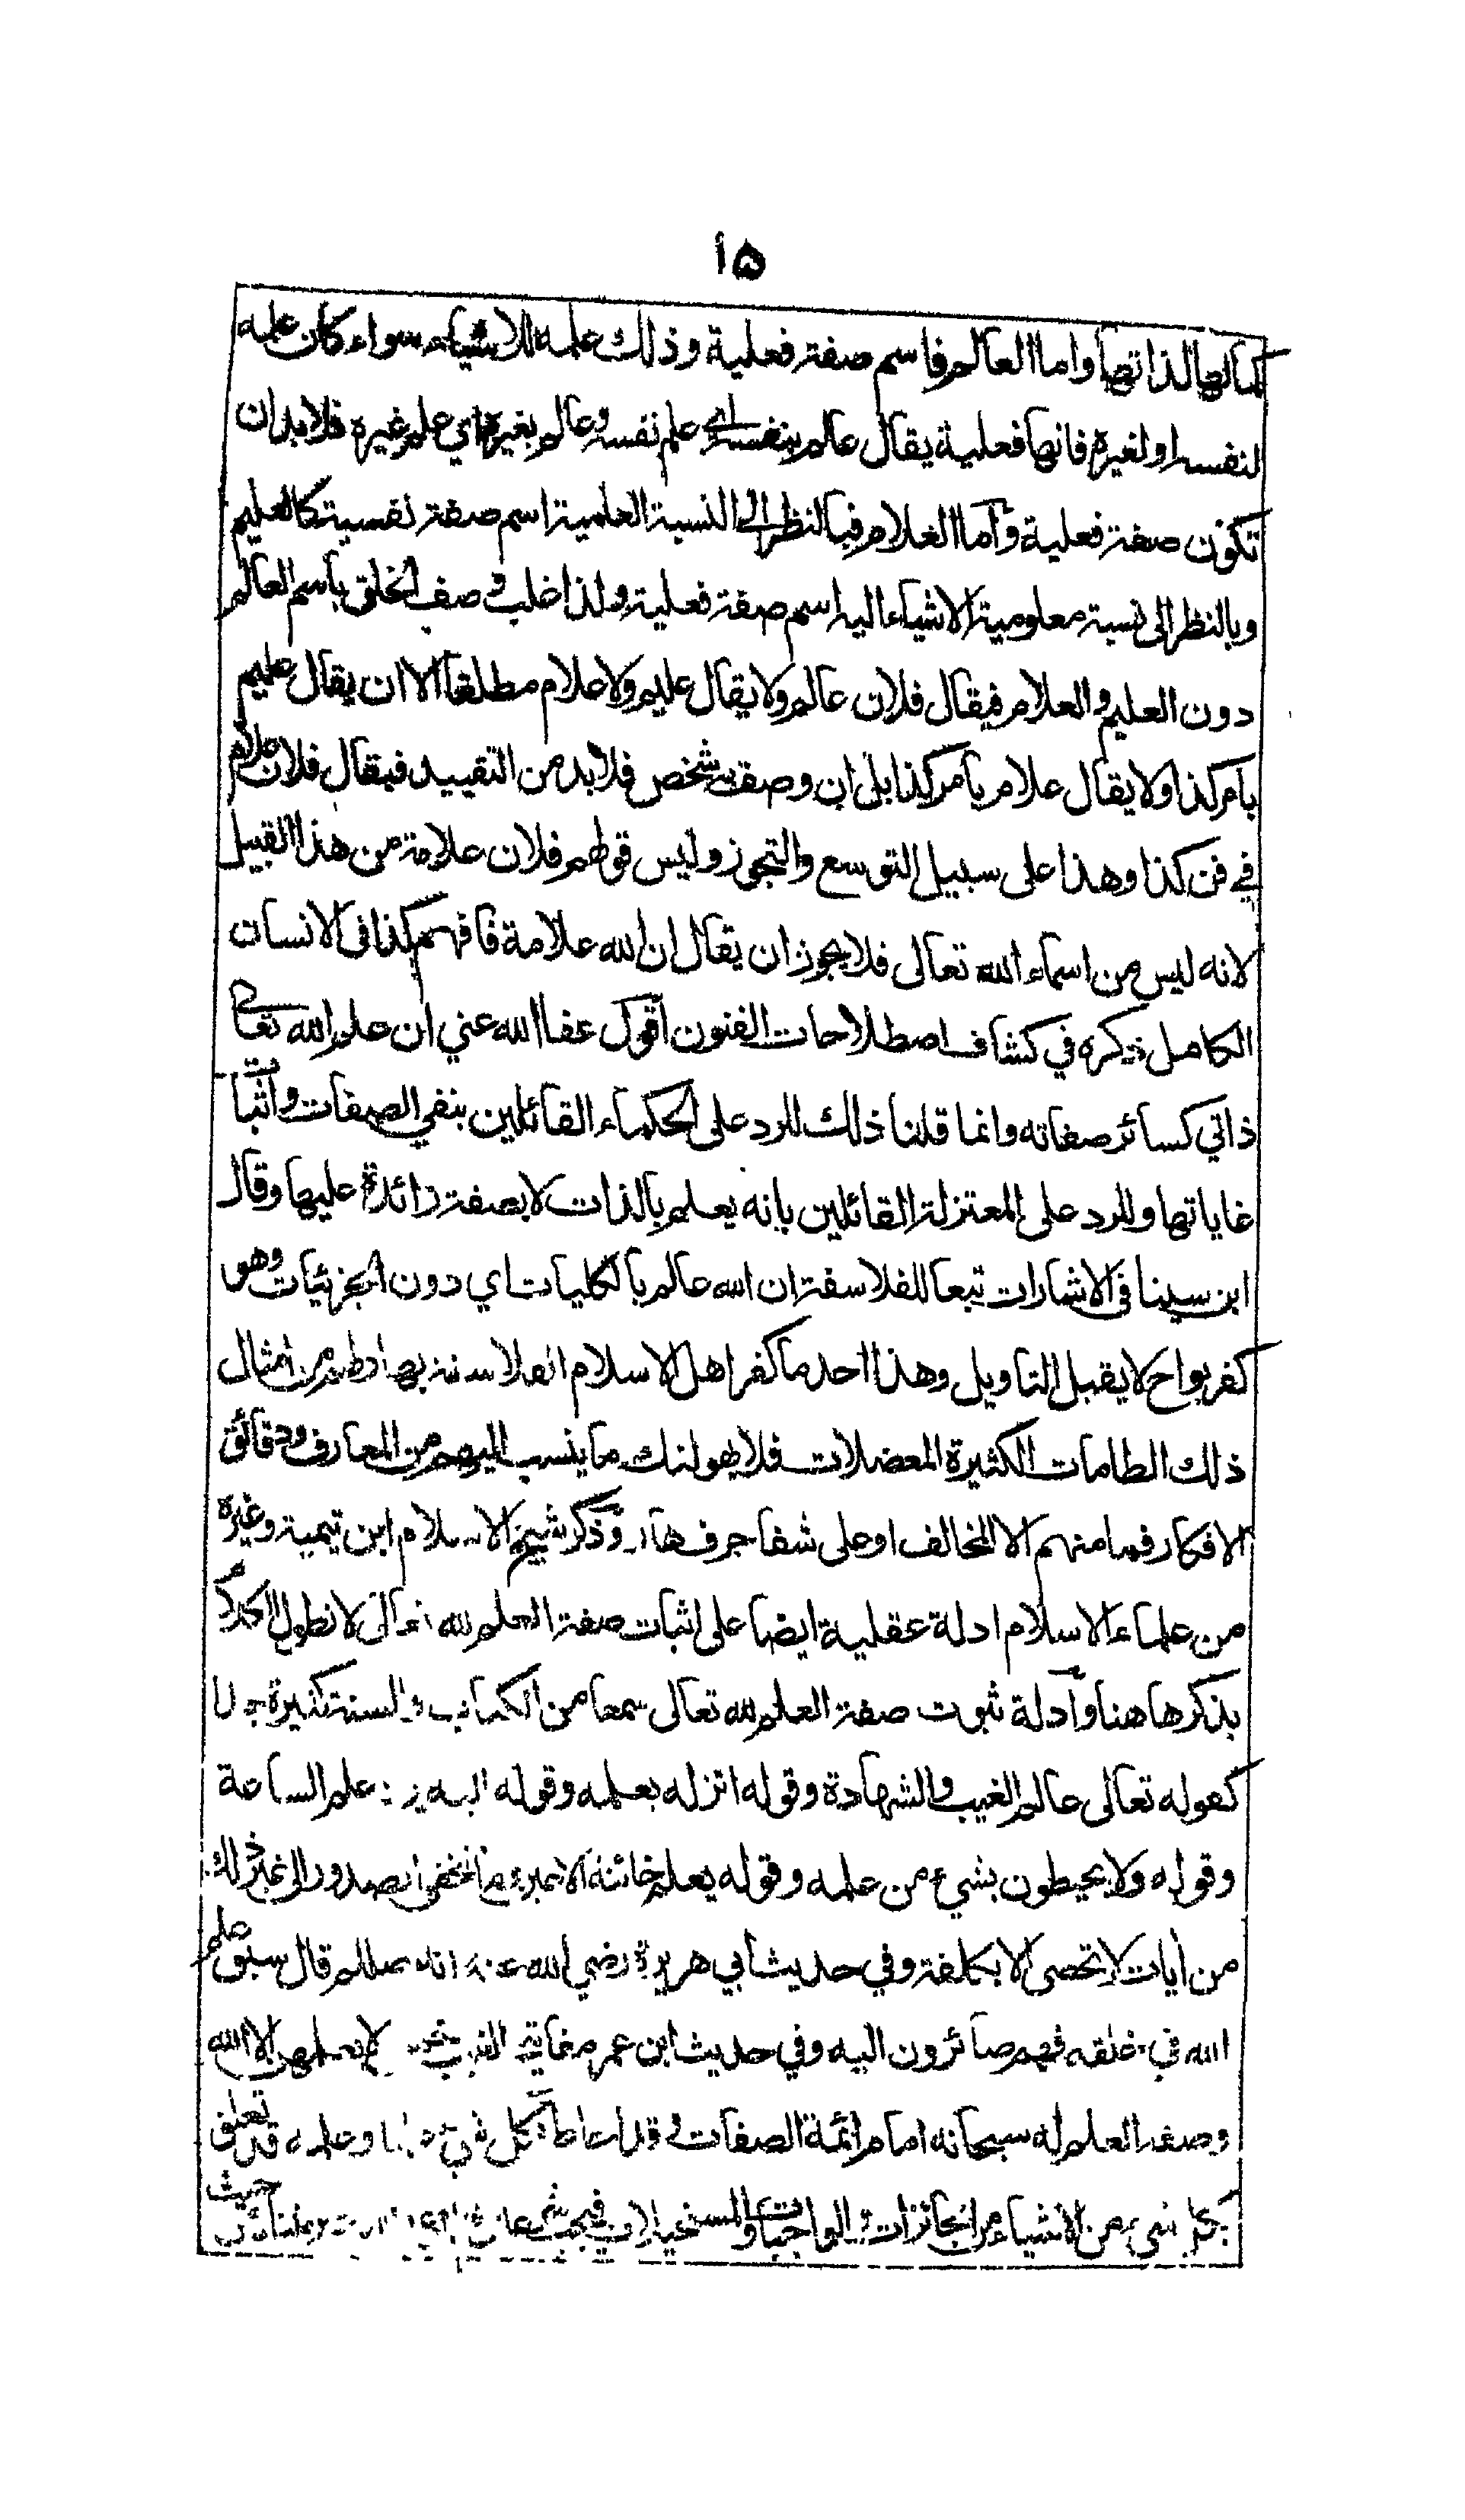 ۱۵
كمالها لذاتها واما العالم فاسم صفة فعلية وذلك علمه للاشياء سواء كان علمه
لنفسه او لغيره فانها فعلية يقال عالم بنفسه اي علم نفسه وعالم بغيره اي علم غيره فلا بد ان
تكون صفة فعلية واما العلام فبالنظر الى النسبة العلمية اسم صفة نفسية كالعليم
وبالنظر الى نسبة معلومية الاشياء اليه اسم صفة فعلية ولذا غلب وصف الخلق باسم العالم
دون العليم والعلام فيقال فلان عالم ولا يقال عليم ولا علام مطلقا الا ان يقال عليم
بامر كذا ولا يقال علام بامر كذا بل ان وصف شخص فلا بد من التقييد فيقال فلان علام
في فن كذا وهذا على سبيل التوسع والتجوز وليس قولهم فلان علامة من هذا القبيل
لانه ليس من اسماء الله تعالى فلا يجوز ان يقال ان الله علامة فافهم كذا في الانسان
الكامل ذكره في كشاف اصطلاحات الفنون اقول عفا الله عني ان علم الله تعالى
ذاتي كسائر صفاته وانما قلنا ذلك للرد على الحكماء القائلين بنفي الصفات واثبات
غاياتها وللرد على المعتزلة القائلين بانه يعلم بالذات لا بصفة زائدة عليها وقال
ابن سينا في الاشارات تبعا للفلاسفة ان الله عالم بالكليات اي دون الجزئيات وهو
كفر بواح لا يقبل التاويل وهذا احد ما كفر اهل الاسلام الفلاسفة به من امثال
ذلك الطامات الكثيرة المعضلات فلا يهولنك ما ينسب اليهم من المعارف ودقائق
الافكار فما منهم الا المخالف او على شفا جرف هار وذكر شيخ الاسلام ابن تيمية وغيره
من علماء الاسلام ادلة عقلية ايضا على اثبات صفة العلم لله تعالى لا نطول الكلام
بذكرها هنا وادلة ثبوت صفة العلم لله تعالى سمعا من الكتاب والسنة كثيرة جدا
كقوله تعالى عالم الغيب والشهادة وقوله انزله بعلمه وقوله اليه يرد علم الساعة
وقوله ولا يحيطون بشيء من علمه وقوله يعلم خائنة الاعين وما تخفي الصدور الى غير ذلك
من ايات لا تحصى الا بكلفة وفي حديث ابي هريرة رضي الله عنه انه صللم قال سبق علم
الله في خلقه فهم صائرون اليه وفي حديث ابن عمر مفاتيح الغيب خمس لا يعلمهن الا الله
وصفة العلم له سبحانه امام ائمة الصفات وقد احاط بكل شيء علما وعلمه قد تعلق
بكل شيء من الاشياء من الجائزات والواجبات والمستحيلات فيجب حيث